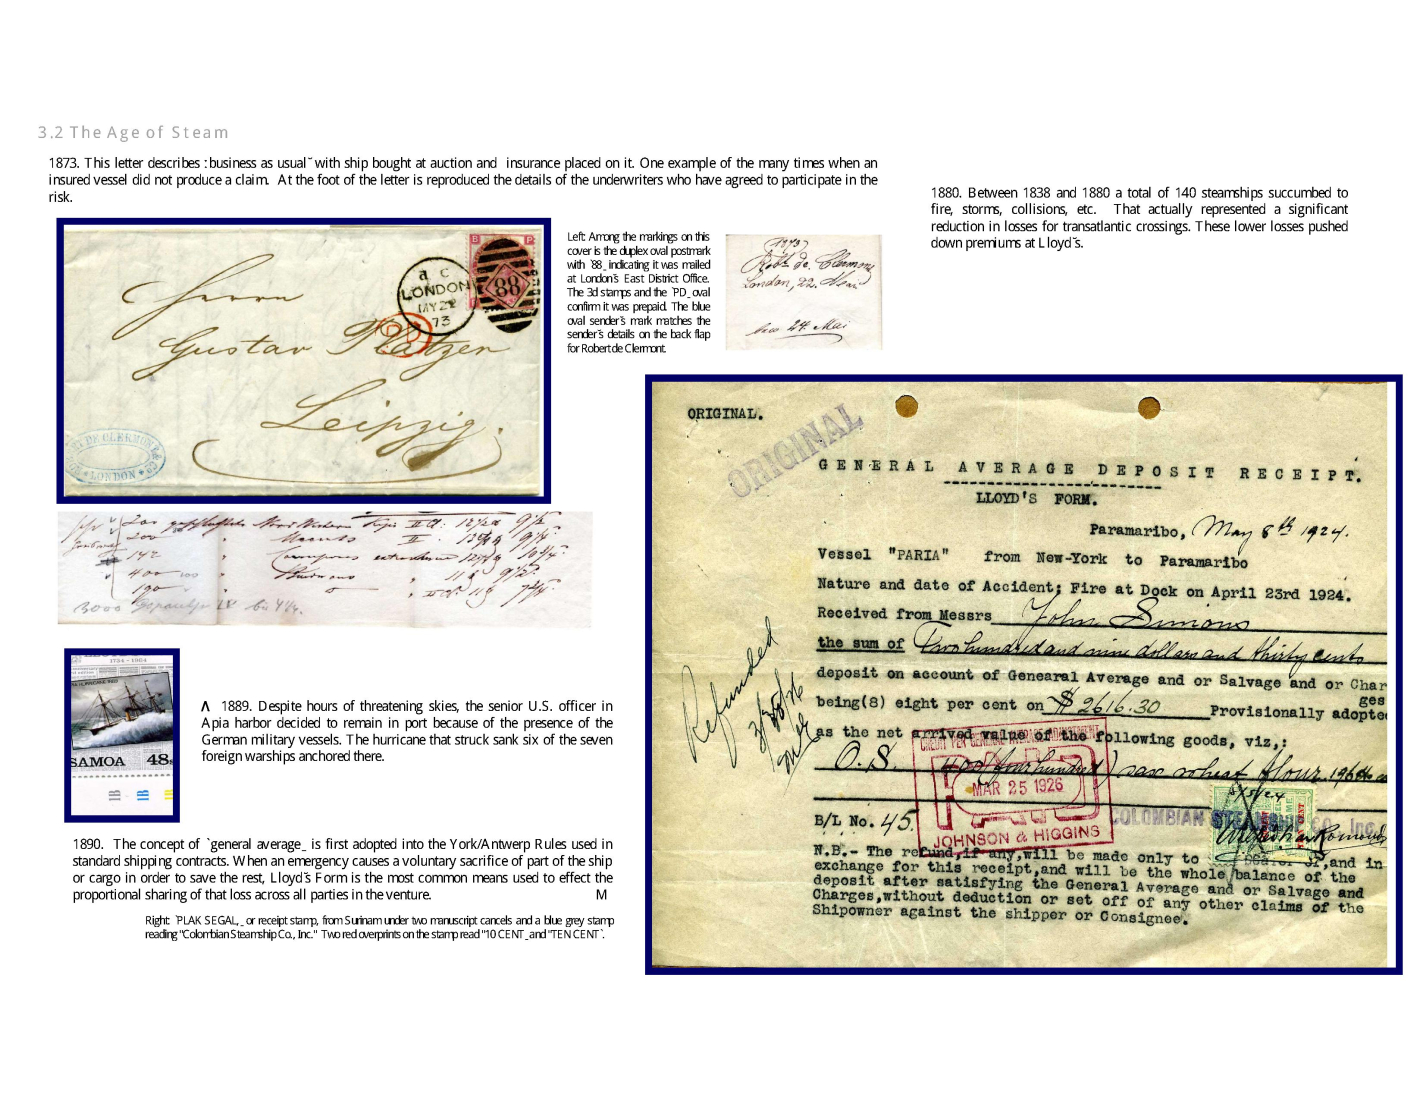 3.2 The Age of Steam
1873. This letter describes :business as usual˝ with ship bought at auction and insurance placed on it. One example of the many times when an
insured vessel did not produce a claim. At the foot of the letter is reproduced the details of the underwriters who have agreed to participate in the
risk.
1880. Between 1838 and 1880 a total of 140 steamships succumbed to
fire, storms, collisions, etc. That actually represented a significant
reduction in losses for transatlantic crossings. These lower losses pushed
down premiums at Lloyd˝s.
Left: Among the markings on this
cover is the duplex oval postmark
with `88_ indicating it was mailed
at London˝s East District Office.
The 3d stamps and the `PD_ oval
confirm it was prepaid. The blue
oval sender˝s mark matches the
sender˝s details on the back flap
for Robert de Clermont.
Herrn
Gustav Platzer
Leipzig.
a c
LONDON
MY 22
73
88
B P
PD
DE CLERMONT
LONDON
1873
Robt de Clermont
London, 22. Mai
24. Mai
200
200
142
400
3000
1734 - 1984
SAMOA 48s
Λ 1889. Despite hours of threatening skies, the senior U.S. officer in
Apia harbor decided to remain in port because of the presence of the
German military vessels. The hurricane that struck sank six of the seven
foreign warships anchored there.
1B 1B
1890. The concept of `general average_ is first adopted into the York/Antwerp Rules used in
standard shipping contracts. When an emergency causes a voluntary sacrifice of part of the ship
or cargo in order to save the rest, Lloyd˝s Form is the most common means used to effect the
proportional sharing of that loss across all parties in the venture. M
Right: `PLAK SEGAL,_ or receipt stamp, from Surinam under two manuscript cancels and a blue grey stamp
reading "Colombian Steamship Co., Inc." Two red overprints on the stamp read "10 CENT_ and "TEN CENT`.
ORIGINAL.
ORIGINAL
GENERAL AVERAGE DEPOSIT RECEIPT.
LLOYD'S FORM.
Paramaribo, May 8th 1924.
Vessel "PARIA" from New-York to Paramaribo
Nature and date of Accident; Fire at Dock on April 23rd 1924.
Received from Messrs John Simons
the sum of Two hundred and nine dollars and thirty cents
deposit on account of Genearal Average and or Salvage and or Char
ges
being(8) eight per cent on $ 2616.30 Provisionally adopted
as the net arrived value of the following goods, viz,:
O.S. 400 (four hundred) sax wheat flour 196
Refunded
MAR 25 1926
JOHNSON & HIGGINS
COLOMBIAN STEAMSHIP CO. Inc.
B/L No. 45.
N.B.- The refund,if any,will be made only to ,and in
exchange for this receipt,and will be the whole balance of the
deposit after satisfying the General Average and or Salvage and
Charges,without deduction or set off of any other claims of the
Shipowner against the shipper or Consignee.